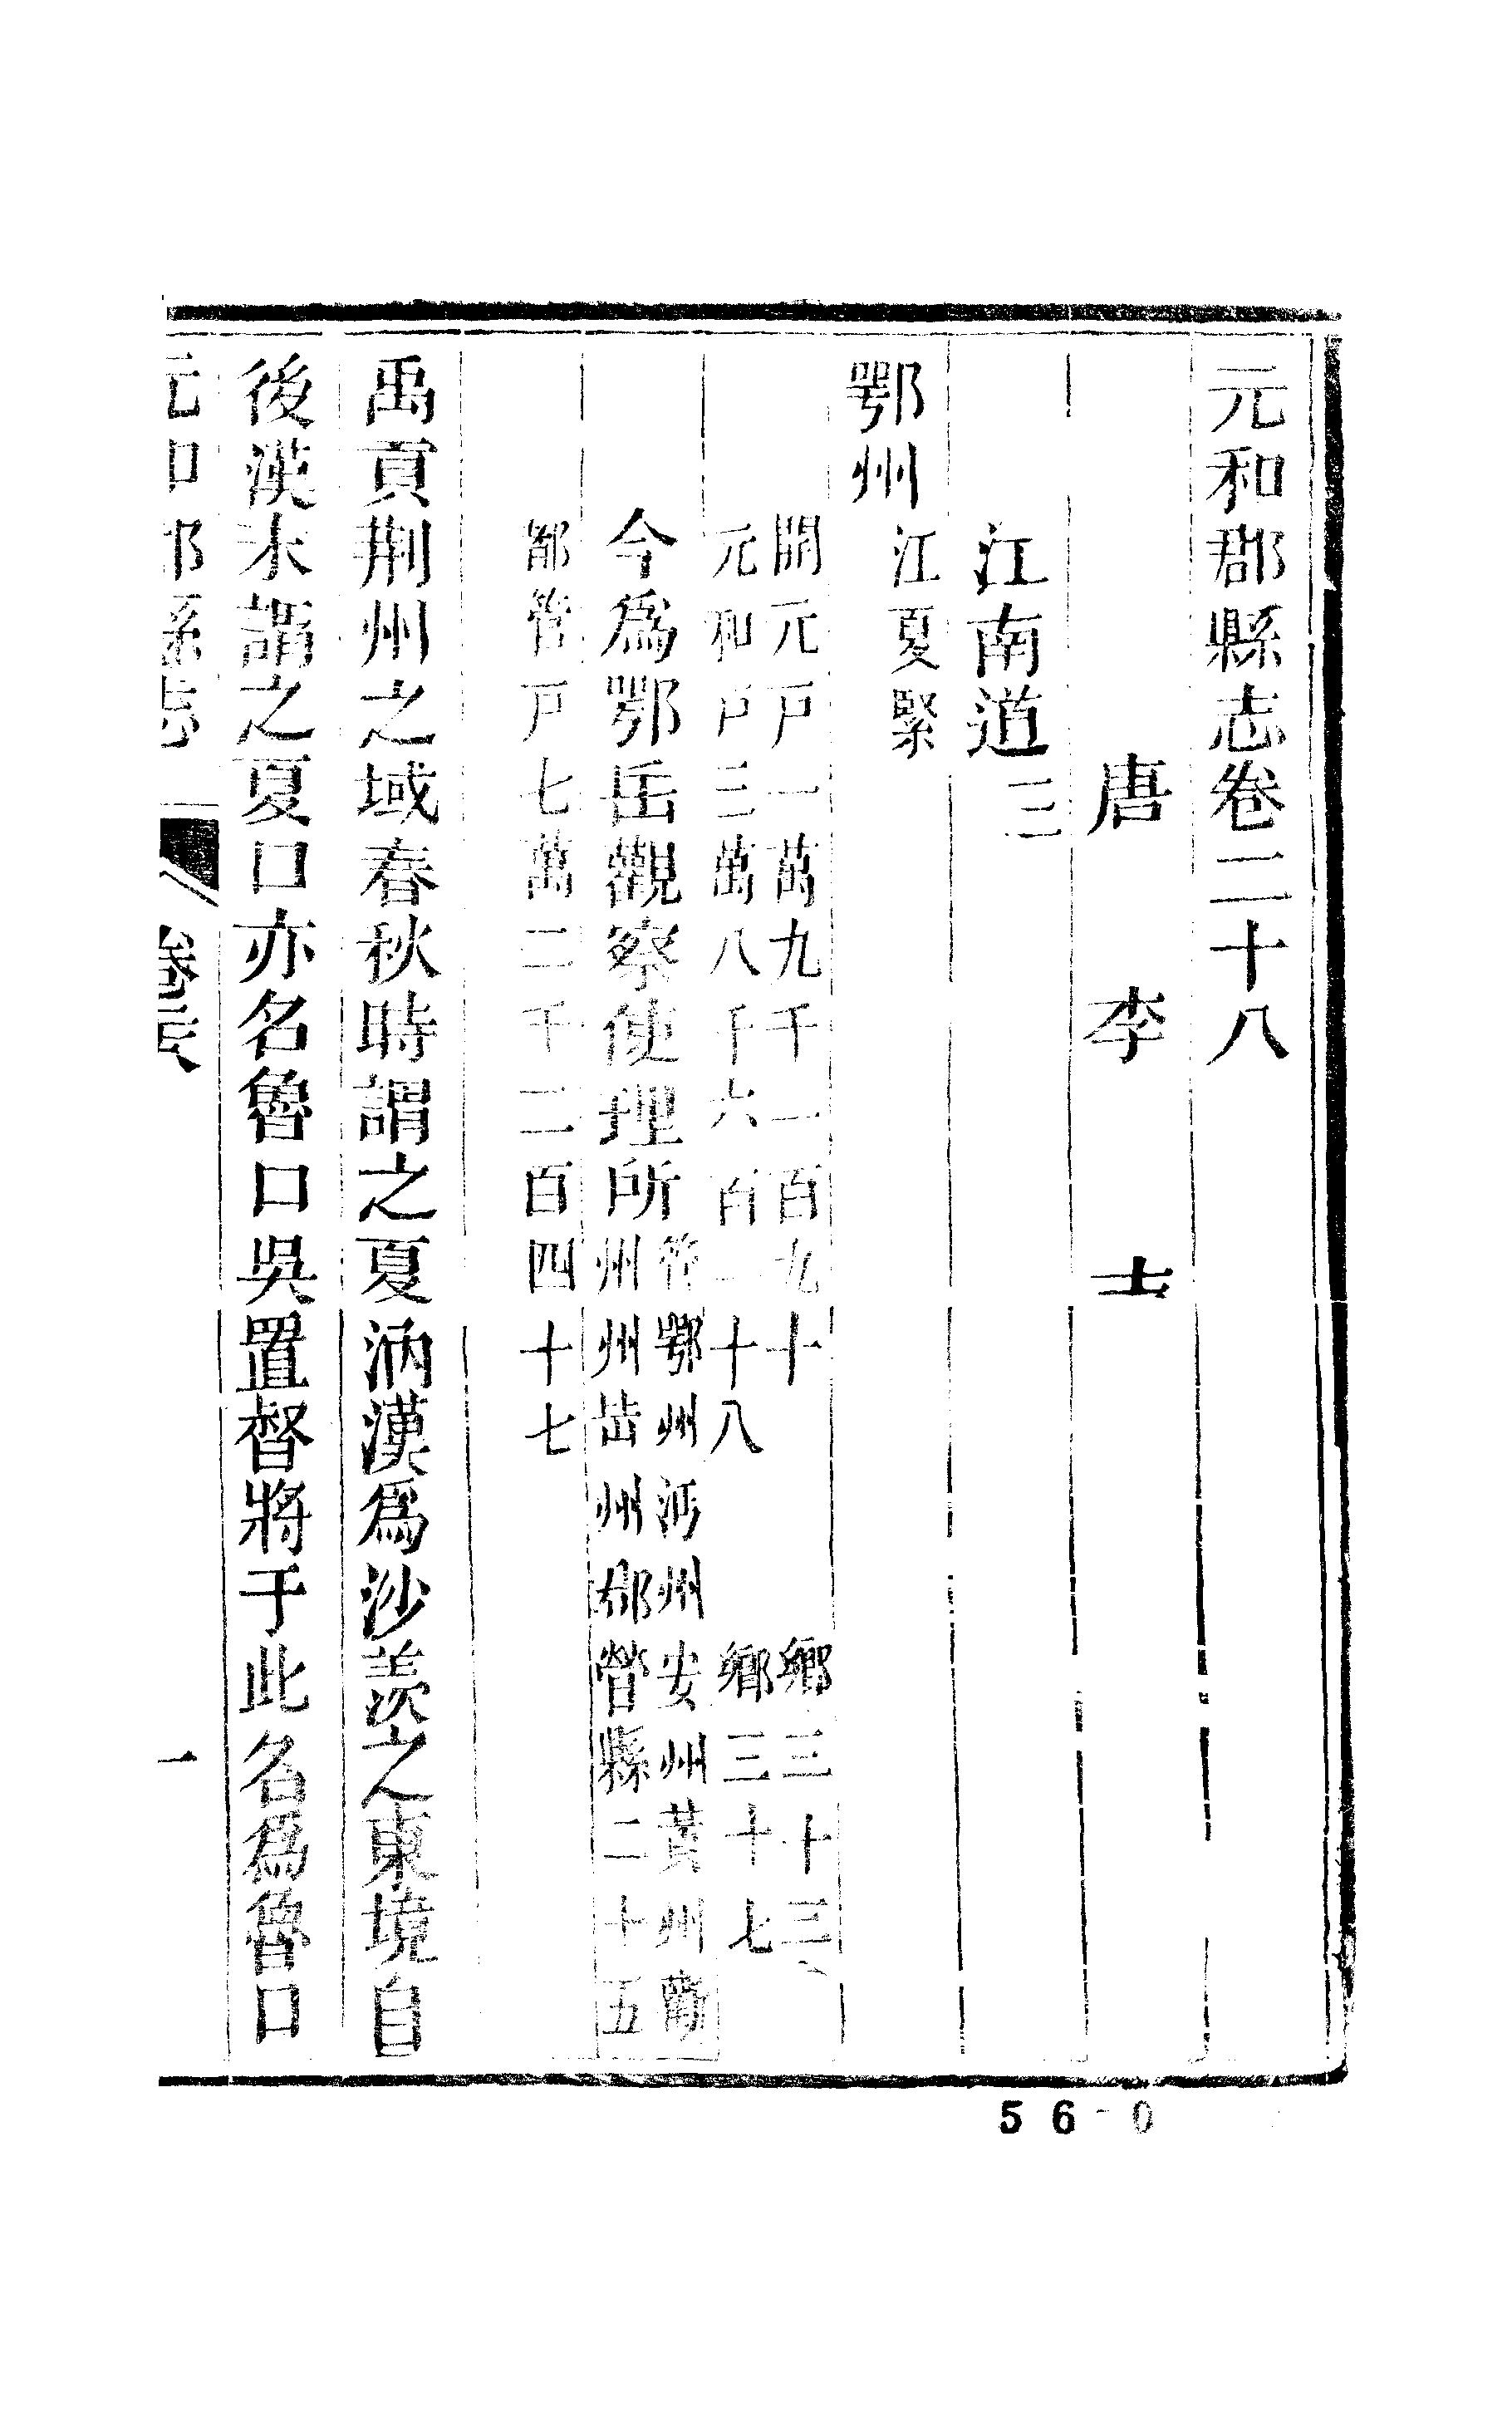 元和郡縣志卷二十八
唐　李　吉
江南道三
鄂州江夏緊
開元戶一萬九千一百九十　鄉三十三
元和戶三萬八千六百一十八　鄉三十七
今為鄂岳觀察使理所管鄂州沔州安州黃州蘄
州州岳州都管縣二十五
都管戶七萬二千二百四十七
禹貢荆州之域春秋時謂之夏汭漢為沙羨之東境自
後漢末謂之夏口亦名魯口吳置督將于此名為魯口
卷二十八
一
56-0